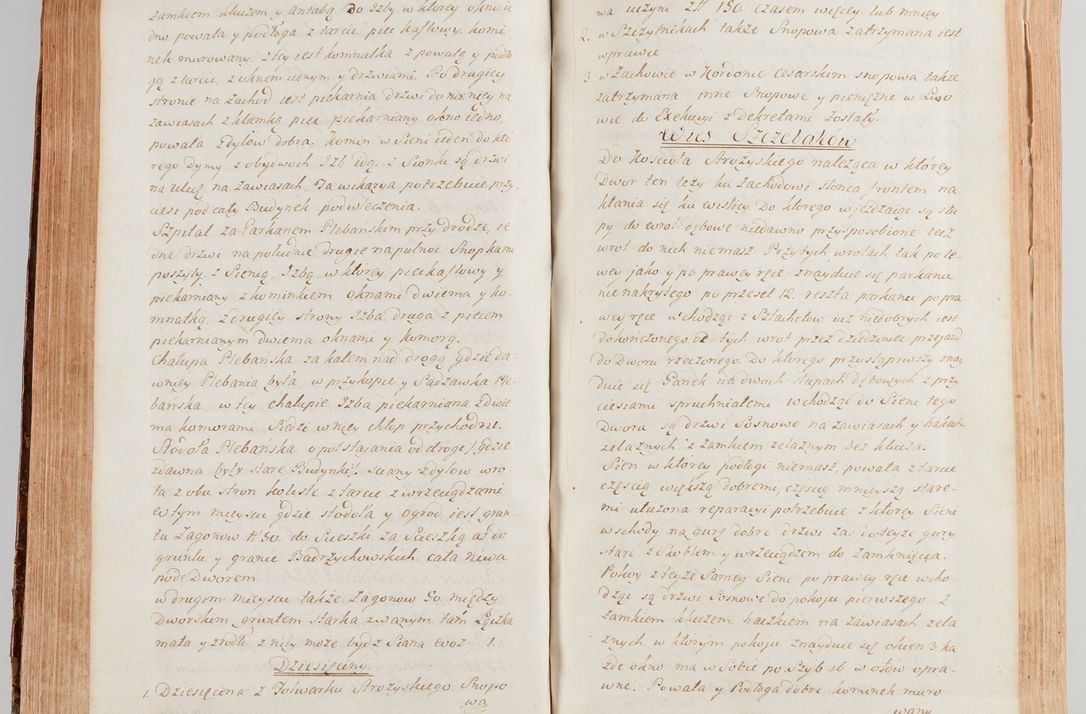 zamkiem kluzem y antabą do Izby w ktorey okno ie
dno powała y podłoga z tarcic piec kaflowy, komi
nek murowany, z tey iest komnatka z powałą y podło
gą z tarcic, z oknem iednym y drzwiami. Po drugiey
stronie na Zachod iest piekarnia drzwi do niey na
zawiasach z klamką piec piekarniany okno iedno,
powała z dylow dobra, komin w Sieni ieden do kto
rego dymy z obydwoch Izb idą. z Sionki są drzwi
na ulicę na zawiasach. Ta wikarya potrzebuie przy
ciesi pod cały Budynek podwleczenia.
Szpital za Parkanem Plebańskim przy drodze, ie
dne drzwi na południe drugie na pułnoc Snopkami
poszyty z Sienią, Izbą w ktorey piec kaflowy y
piekarniany z kominkiem oknami dwiema y ko
mnatką. z drugiey strony Izba druga z piecem
piekarnianym dwiema oknami y komorą.
Chałupa Plebańska za kałem nad drogą gdzie da
wniey Plebania była, w przykopie y Sadzawka Ple
bańska w tey chałupie Izba piekarniana z dwie
ma komorami Siedzi w niey chłop przychodni.
Stodoła Plebańska opodal stajania od drogi, gdzie
zdawna były stare Budynki. Sciany z dylow wro
ta z obu stron koliste z tarcic z wrzeciądzami
w tym mieyscu gdzie stodoła y ogrod iest grun
tu Zagonow N 50. do Scieszki za Scieszką aż do
gruntu y granic Badrzychowskich cała niwa
pode Dworem
w drugim mieyscu także Zagonow 50. między
Dworskim gruntem Starka zwanym tam Łączka
mała y zrodło z niey może bydz Siana woz 1.
Dziesięciny
1. Dziesięcina z Folwarku Strożyskiego Snopo
wa
wa uczyni Zł 150 czasem więcey lub mniey
2. w Szczytnikach także Snopowa zatrzymana iest
w prawie
3. w Zachowie w Kordonie Cesarskim snopowa także
zatrzymana inne Snopowe y pieniężne w Lwo
wie do Exekucyi z Dekretami zostały.
Wieś Szczeblotow
Do Kościoła Strożyskiego należąca w ktorey
Dwor ten leży ku Zachodowi słońca, frontem na
kłania się ku w Do ktorego wjezdzaiąc są słu
py do wrot dębowe niedawno przysposobione lecz
wrot do nich niemasz. Przy tych wrotach tak po le
wey jako y po prawey ręce znayduie się parkanu
nie nakrytego po przeseł 12. reszta parkanu po pra
wey ręce wchodząc z Sztachetow iuż niedobrych, iest
dokończonego od tych wrot przez dziedziniec przejazd
do Dworu rzeczonego. Do ktorego przystąpiwszy znay
duie się Ganek na dwoch słupach dębowych z przy
ciesiami spruchniałemi wchodząc do Sieni tego
Dworu są drzwi Sosnowe na zawiasach y hakach
żelaznych z zamkiem żelaznym bez klucza.
Sien w ktorey podłogi niemasz, powała z tarcic
częścią większą dobremi, częścią mnieyszą stare
mi ułożona reparacyi potrzebuie z ktorey Sieni
wschody na gurę dobre drzwi zaś do teyże gury
stare z Skoblem y wrzeciądzem do zamknięcia.
Poszy z teyże Samey Sieni po prawey ręce wcho
dząc są drzwi Sosnowe do pokoju pierwszego z
zamkiem kluczem haczkiem na zawiasach żela
znych, w ktorym pokoju znayduie się okien 3. ka
żde okno ma w Sobie po Szyb 16 w ołow opra
wne. Powała y Podłoga dobre, kominek muro
wany